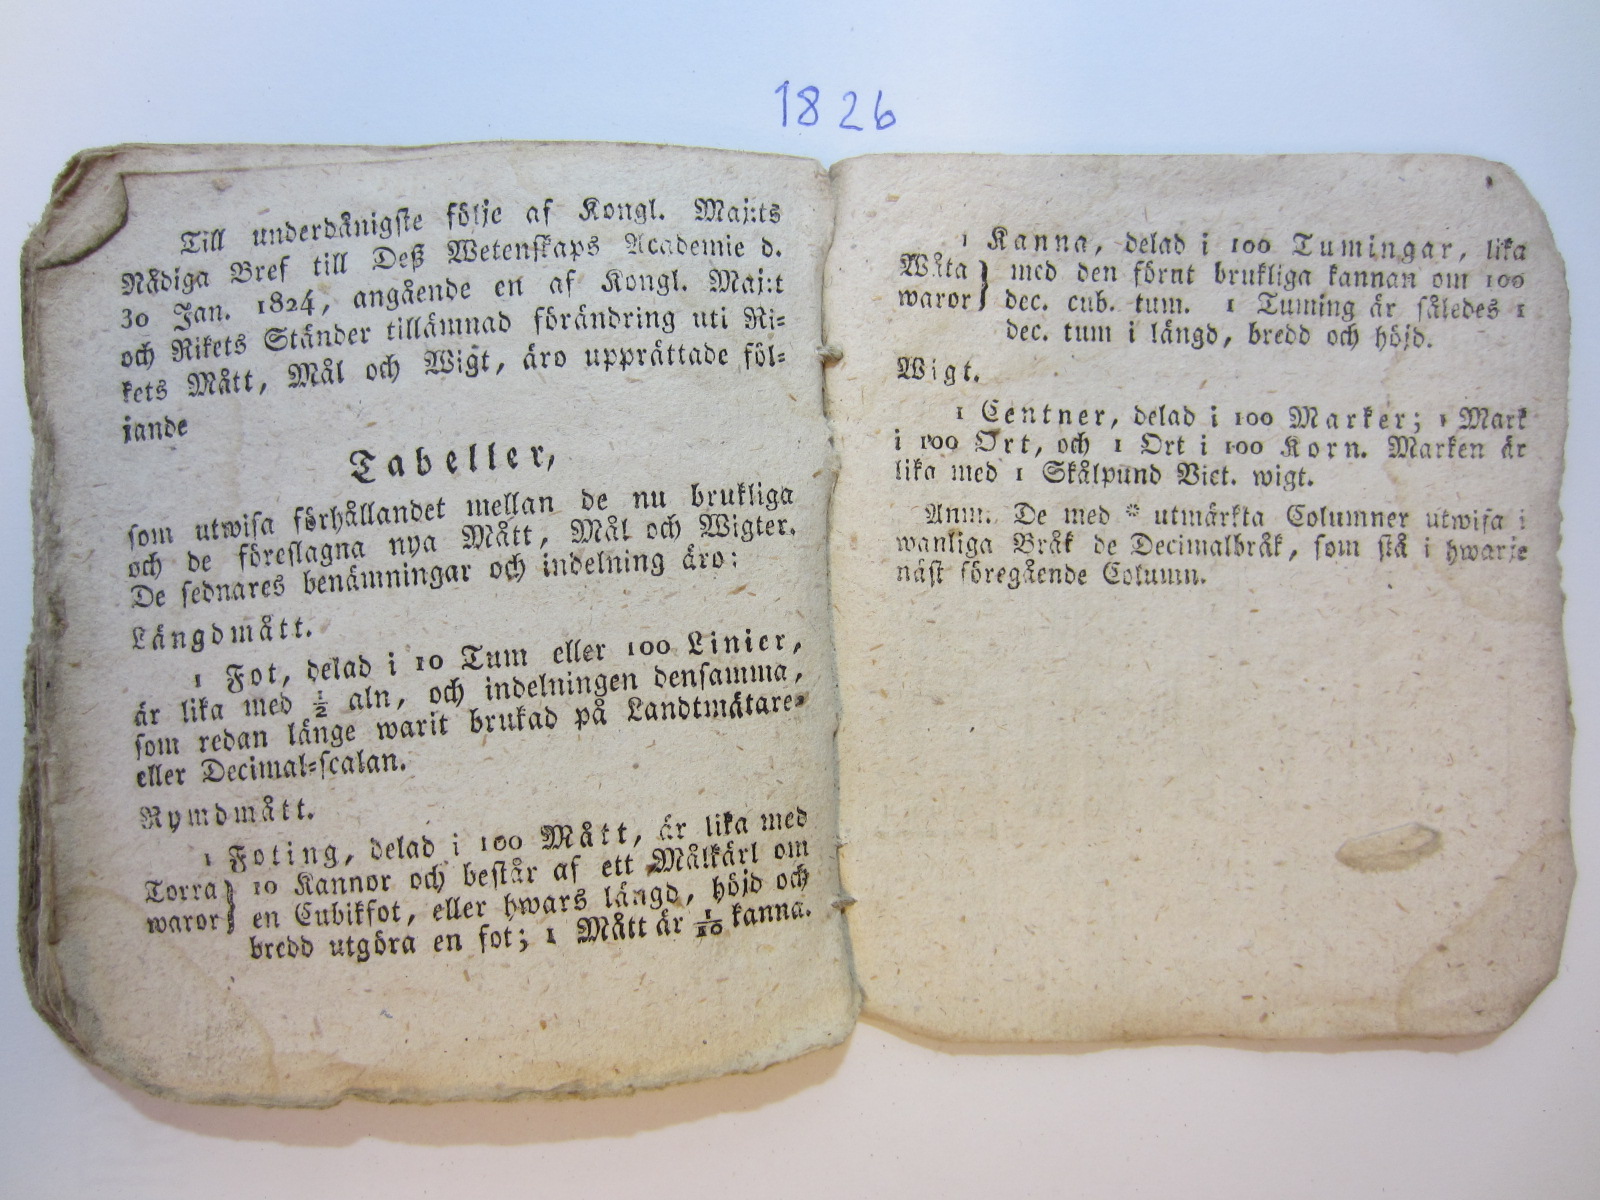 1826
Till underdånigste följe af Kongl. Maj:ts
Nådiga Bref till Deß Wetenskaps Academie d.
30 Jan. 1824, angående en af Kongl. Maj:t
och Rikets Ständer tillämnad förändring uti Ri=
kets Mått, Mål och Wigt, äro upprättade föl=
jande
Tabeller,
som utwisa förhållandet mellan de nu brukliga
och de föreslagna nya Mått, Mål och Wigter.
De sednares benämningar och indelning äro:
Längdmått.
1 Fot, delad i 10 Tum eller 100 Linier,
är lika med 1/2 aln, och indelningen densamma,
som redan länge warit brukad på Landtmätare=
eller Decimal=scalan.
Rymdmått.
1 Foting, delad i 100 Mått, är lika med
Torra } 10 Kannor och består af ett Målkärl om
waror } en Cubikfot, eller hwars längd, höjd och
bredd utgöra en fot; 1 Mått är 1/10 kanna.
1 Kanna, delad i 100 Tumingar, lika
Wåta } med den förut brukliga kannan om 100
waror } dec. cub. tum. 1 Tuming är således 1
dec. tum i längd, bredd och höjd.
Wigt.
1 Centner, delad i 100 Marker; 1 Mark
i 100 Ort, och 1 Ort i 100 Korn. Marken är
lika med 1 Skålpund Vict. wigt.
Anm. De med * utmärkta Columner utwisa i
wanliga Bråk de Decimalbråk, som stå i hwarje
näst föregående Column.